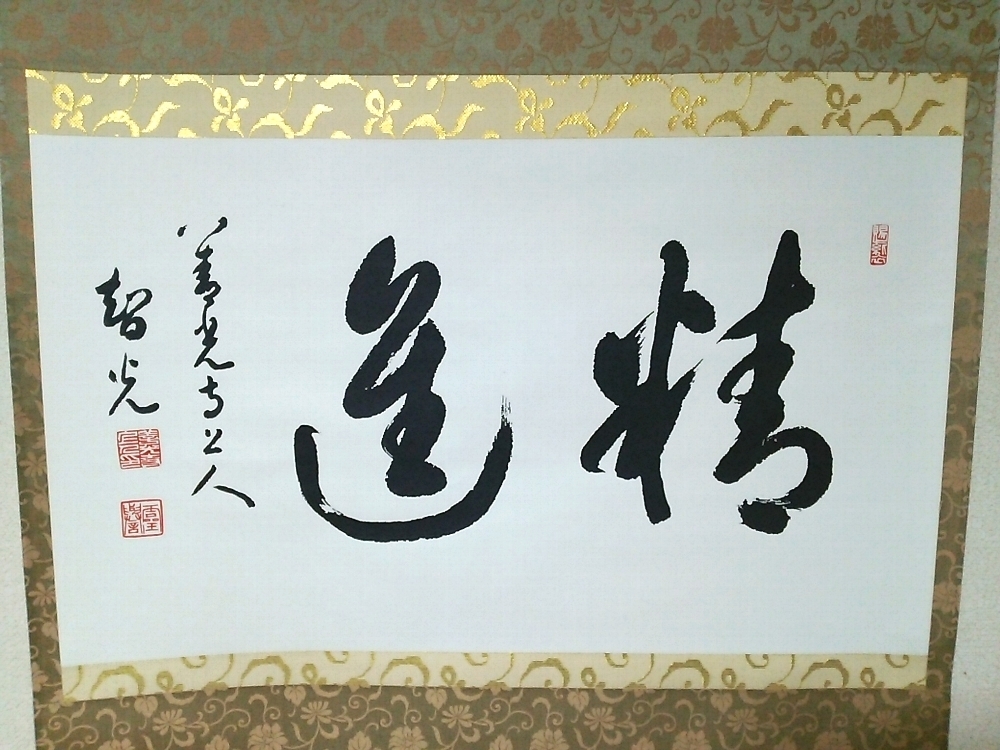 精進
善光寺上人
智光